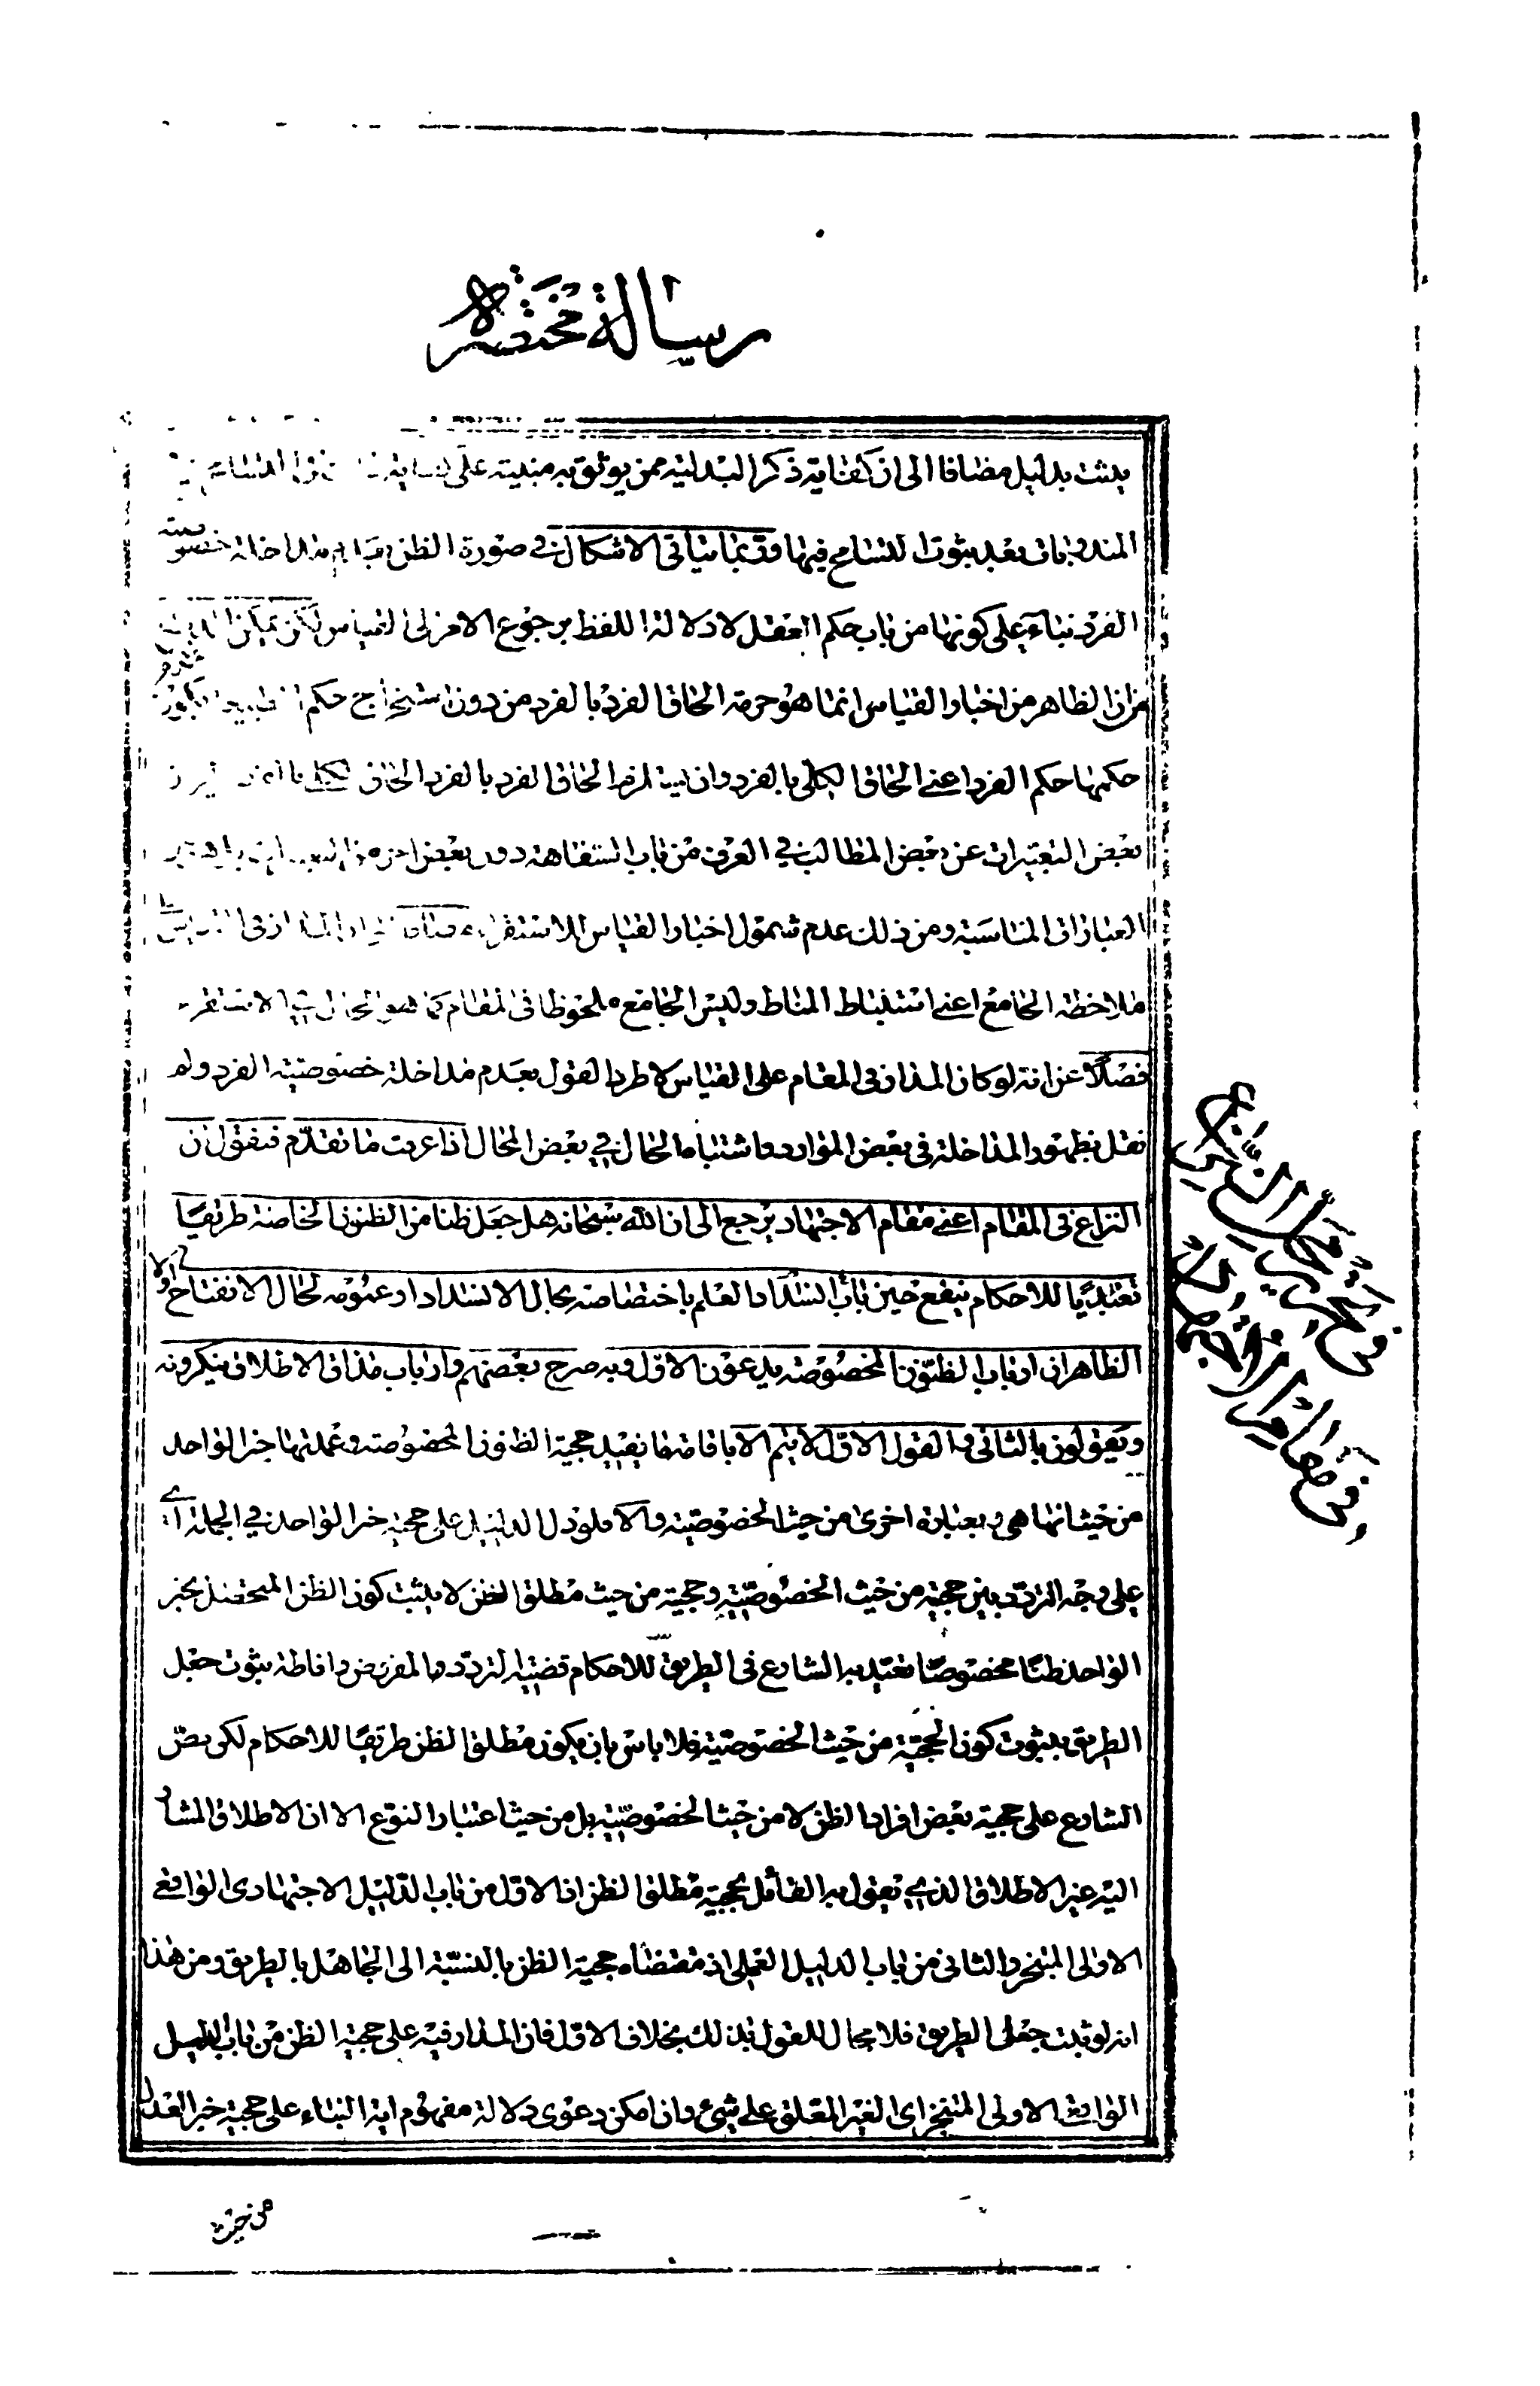 رسالة مختصرة
يثبت بدليل مضافا الى ان كفاية ذكر البدلية ممن يوثق به مبنية على
المندوبات بعد ثبوت التسامح فيها وقد يتاتى الاشكال في صورة الظن بعدم مداخلة خصوصية
الفرد بناء على كونها من باب حكم العقل لا دلالة اللفظ برجوع الامر الى القياس لكن يمكن
من ان الظاهر من اخبار القياس انما هو حرمة الحاق الفرد بالفرد من دون استخراج حكم
حكمها حكم الفرد اعنى الحاق الكلي بالفرد وان يستلزم الحاق الفرد بالفرد الحاق
بعض التعبيرات عن بعض المطالب في العرف من باب السفاهة دون بعض اخر
العبارات المناسبة ومن ذلك عدم شمول اخبار القياس للاستقراء
ملاحظة الجامع اعنى استنباط المناط وليس الجامع ملحوظا فى المقام كما هو الحال في الاستقراء
فضلا عن انه لو كان المدار فى المقام على القياس لاطرد القول بعدم مداخلة خصوصية الفرد ولم
نقل بظهور المداخلة فى بعض الموارد واشتباه الحال في بعض المحال اذا عرفت ما تقدم فنقول ان
النزاع فى المقام اعنى مقام الاجتهاد يرجع الى ان الله سبحانه هل جعل ظنا من الظنون الخاصة طريقا
تعبديا للاحكام ينفع حين باب انسداد العلم باختصاصه بحال الانسداد او عمومه لحال الانفتاح اولا
الظاهر ان ارباب الظنون المخصوصة يدعون الاول وبه صرح بعضهم وارباب مذاق الاطلاق ينكرونه
ويقولون بالثانى والقول الاول لا يتم الا باقامة ما يفيد حجية الظنون المخصوصة وعمدتها خبر الواحد
من حيث انها هى وبعبارة اخرى من حيث الخصوصية والا فلو دل الدليل على حجية خبر الواحد في الجملة اى
على وجه التردد بين حجية من حيث الخصوصية وحجية من حيث مطلق الظن لا يثبت كون الظن المتحصل بخبر
الواحد ظنا مخصوصا تعبد به الشارع فى الطريق للاحكام قضية التردد والمفروض اناطة ثبوت جعل
الطريق بثبوت كون الحجية من حيث الخصوصية فلا باس بان يكون مطلق الظن طريقا للاحكام لكن نص
الشارع على حجية بعض افراد الظن لا من حيث الخصوصية بل من حيث اعتبار النوع الا ان الاطلاق المشار
اليه غير الاطلاق الذي يقول به القائل بحجية مطلق الظن اذ الاول من باب الدليل الاجتهادى الواقعى
الاولى المنجز والثانى من باب الدليل العملى اذ مقتضاه حجية الظن بالنسبة الى الجاهل بالطريق ومن هذا
انه لو ثبت جعل الطريق فلا مجال للقول بذلك بخلاف الاول فان المدار فيه على حجية الظن من باب الدليل
الواقعى الاولى المنجز اى الغير المعلق على شيئ وان امكن دعوى دلالة مفهوم اية النباء على حجية خبر العدل
من حيث
في تحرير محل النزاع
في مقام الاجتهاد